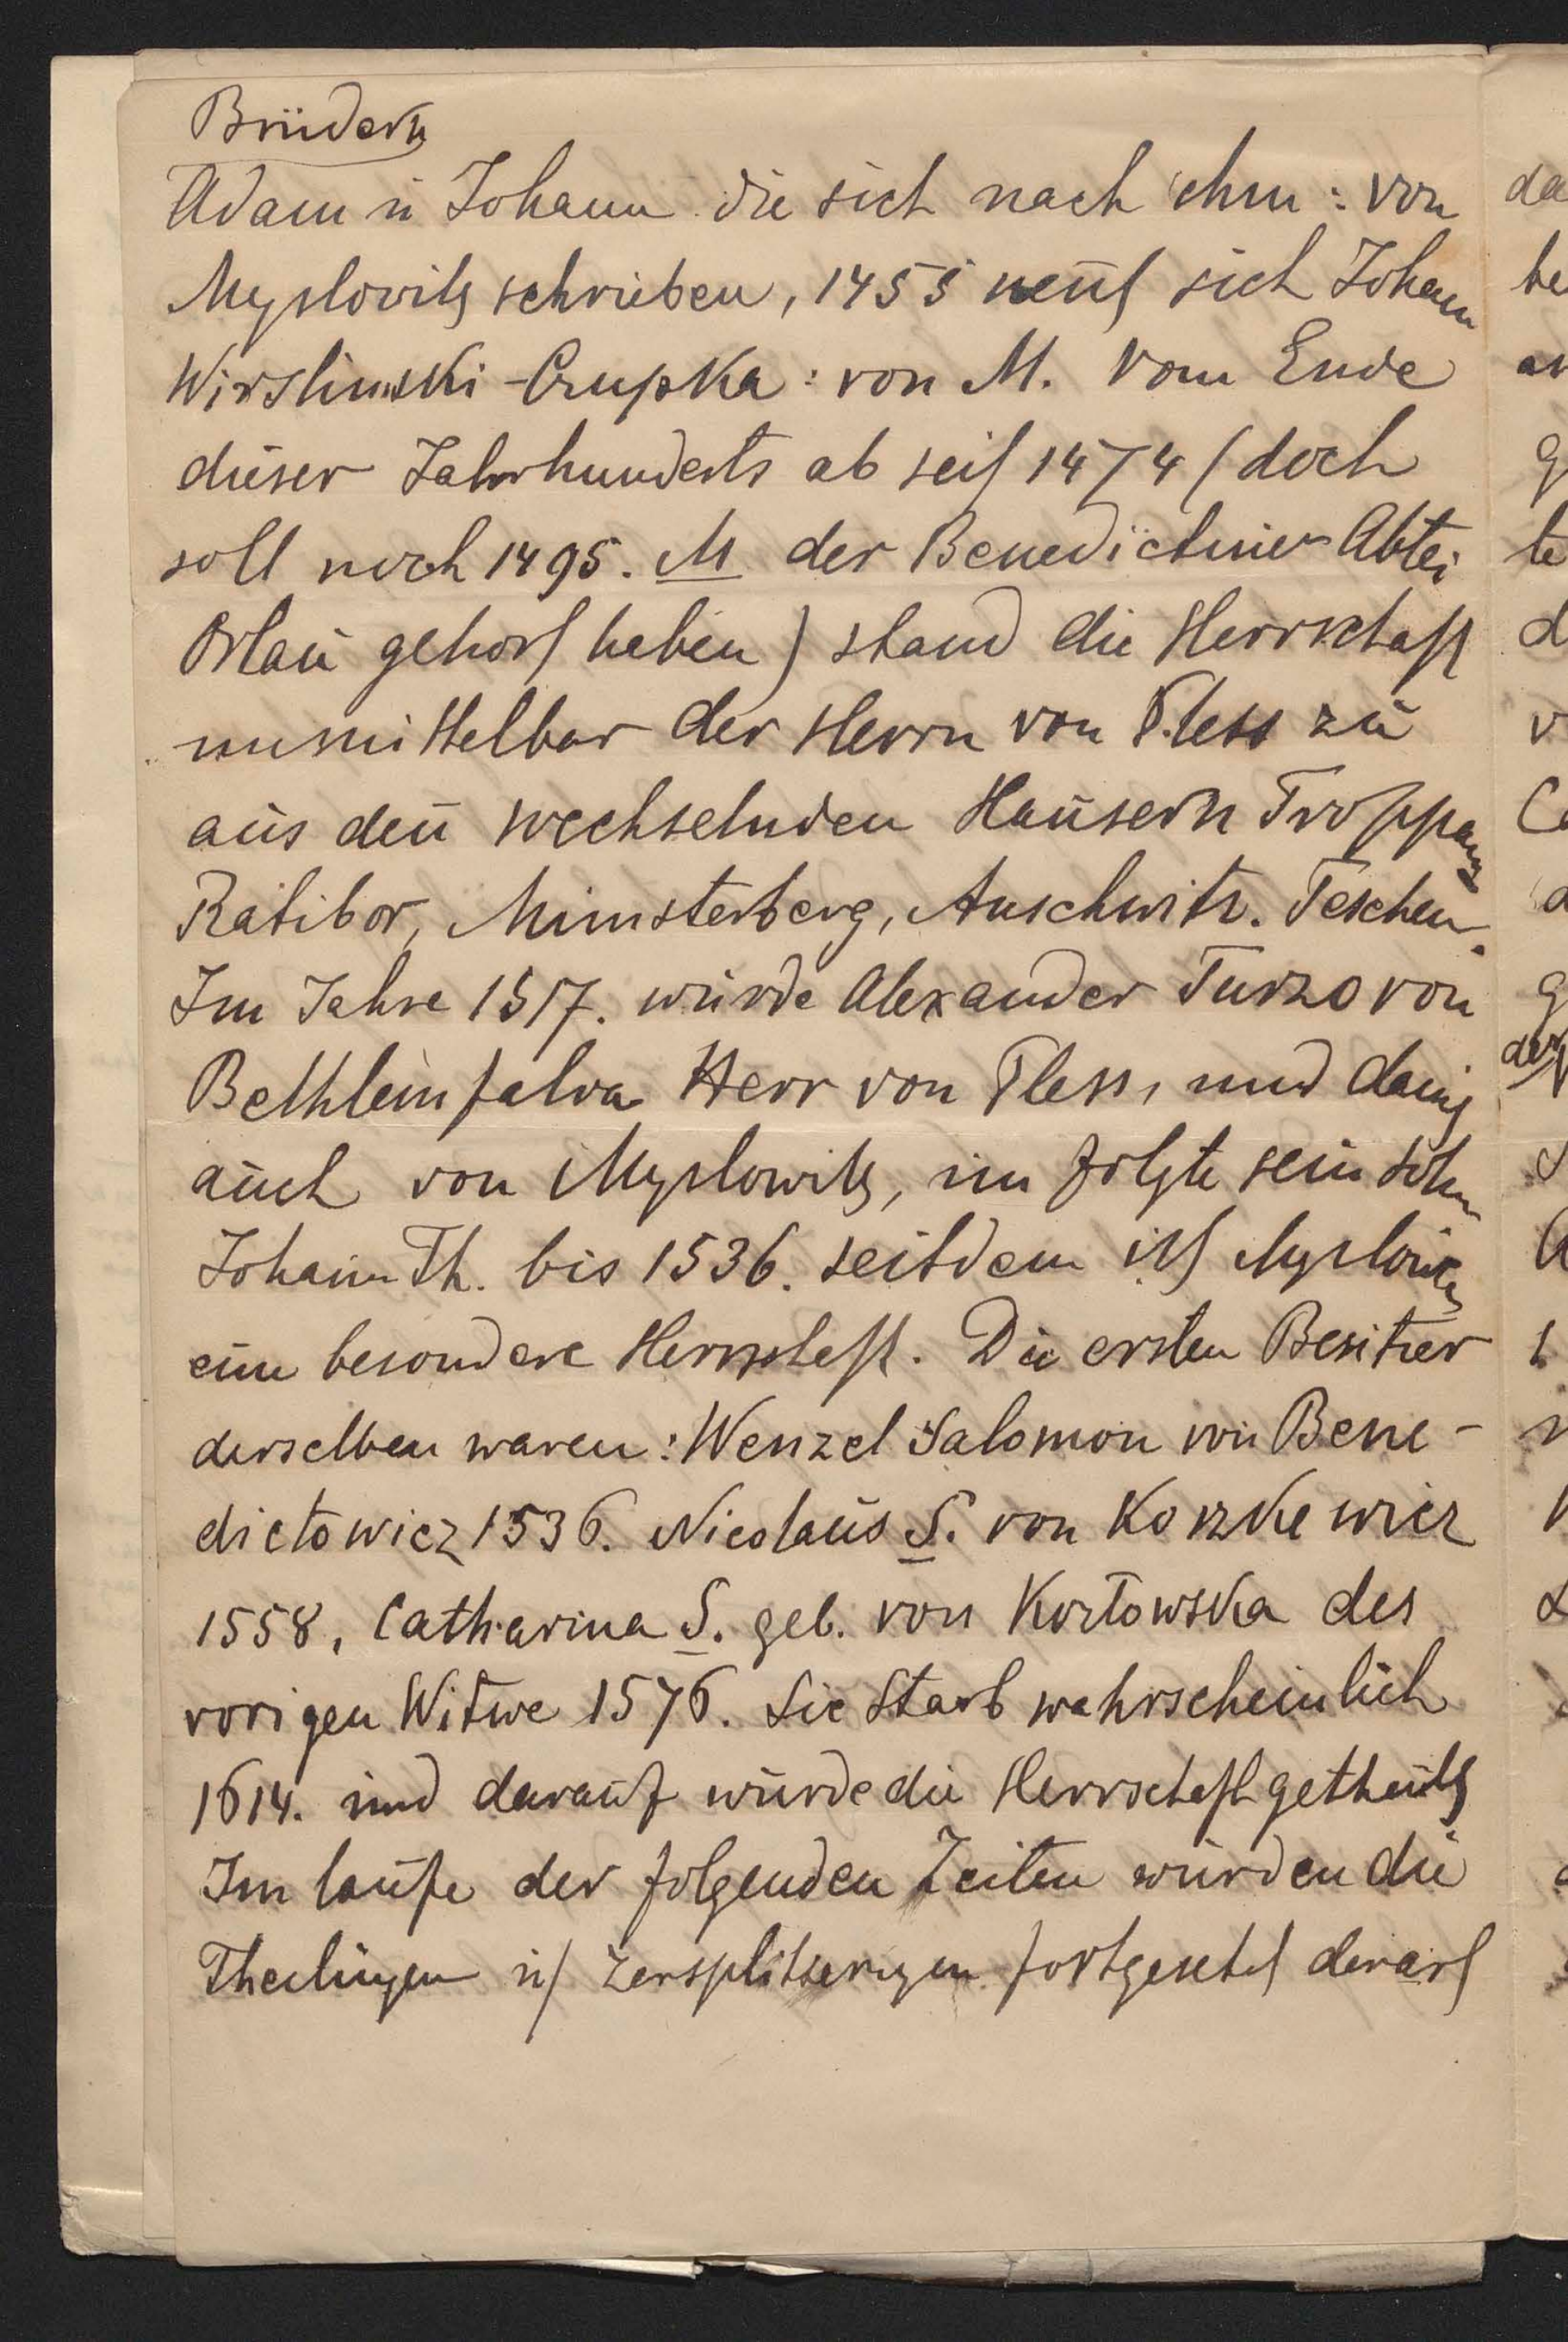 Brüdern
Adam u Johann die sich nach ihm: von
Myslovitz schrieben, 1455 nent sich Johann
Wirslinski-Crupka: von M. Vom Ende
dieser Jahrhunderts ab seit 1474 (doch
soll noch 1495. M der Benedictiner Abtei
Orlau gehort haben) stand die Herrschaft
unmittelbar der Herrn von Pless zu
aus den wechselnden Hausern Troppau
Ratibor, Münsterberg, Auschwitz. Teschen.
Im Jahre 1517. wurde Alexander Turzo von
Bethlemfalva Herr von Pless, und damit
auch von Myslowitz, im folgte sein Sohn
Johann Th. bis 1536. seitdem ist Myslowitz
eine besondere Herrschaft. Die ersten Besitzer
derselben waren: Wenzel Salomon von Bene-
dictowicz 1536. Nicolaus S. von Korzkewicz
1558, Catharina S. geb. von Kortowska des
vorigen Witwe 1576. Sie starb wahrscheinlich
1614. und darauf wurde die Herrschaft getheilt
Im laufe der folgenden Zeiten wurden die
Theilungen u Zersplitterungen fortgesetzt derart